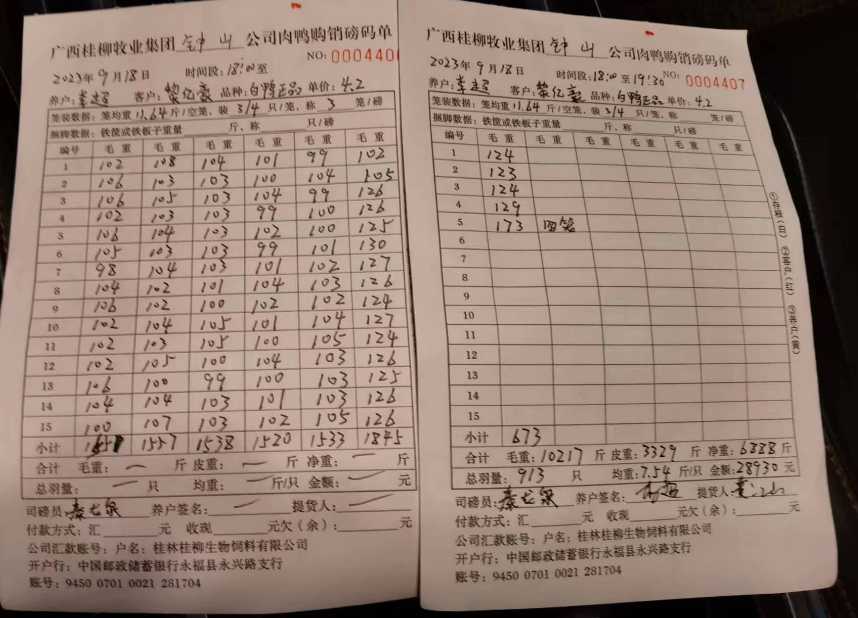 广西桂柳牧业集团 钟山 公司肉鸭购销磅码单
NO: 0004406
2023年 9月 18日 时间段: 18:00至
养户: 李超 客户: 黎亿豪 品种: 白鸭正品 单价: 4.2
笼装数据: 笼均重 11.64 斤/空笼、装 3/4 只/笼、称 3 笼/磅
捆脚数据: 铁筐或铁板子重量 斤、称 只/磅
编号 毛重 毛重 毛重 毛重 毛重 毛重
1 102 108 104 101 99 102
2 106 103 103 100 104 105
3 106 105 103 104 99 126
4 102 103 103 99 100 126
5 106 104 103 102 100 125
6 105 103 103 99 101 130
7 98 104 103 101 102 127
8 104 102 101 104 103 126
9 106 102 100 102 102 124
10 102 104 105 101 104 127
11 102 103 105 100 105 124
12 102 105 100 104 103 126
13 106 100 99 100 103 125
14 104 104 103 101 103 126
15 100 107 103 102 105 126
小计 1551 1557 1538 1520 1533 1845
合计 毛重: — 斤 皮重: — 斤 净重: — 斤
总羽量: — 只 均重: — 斤/只 金额: — 元
司磅员: 秦龙泉 养户签名: — 提货人: —
付款方式: 汇 元 收现 元欠(余): 元
公司汇款账号: 户名: 桂林桂柳生物饲料有限公司
开户行: 中国邮政储蓄银行永福县永兴路支行
账号: 9450 0701 0021 281704
广西桂柳牧业集团 钟山 公司肉鸭购销磅码单
2023年 9月 18日 时间段: 18:00 至 19:30 NO: 0004407
养户: 李超 客户: 黎亿豪 品种: 白鸭正品 单价: 4.2
笼装数据: 笼均重 11.64 斤/空笼、装 3/4 只/笼、称 笼/磅
捆脚数据: 铁筐或铁板子重量 斤、称 只/磅
编号 毛重 毛重 毛重 毛重 毛重 毛重
1 124
2 123
3 124
4 129
5 173 四笼
6
7
8
9
10
11
12
13
14
15
小计 673
合计 毛重: 10217 斤 皮重: 3329 斤 净重: 6888 斤
总羽量: 913 只 均重: 7.54 斤/只 金额: 28930 元
司磅员: 秦龙泉 养户签名: 李超 提货人:
付款方式: 汇 元 收现 元欠(余): 元
公司汇款账号: 户名: 桂林桂柳生物饲料有限公司
开户行: 中国邮政储蓄银行永福县永兴路支行
账号: 9450 0701 0021 281704
①存根(白) ②客户(红) ③养户(黄)